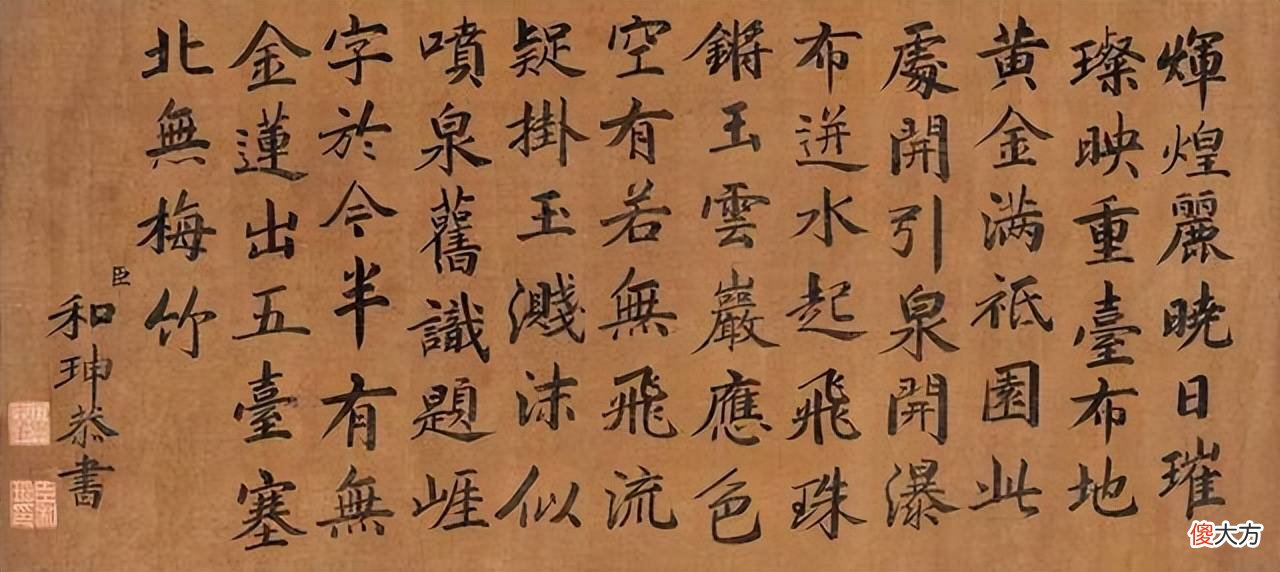 輝煌麗曉日璀
璨映重臺布地
黄金满祇園此
處開引泉開瀑
布迸水起飛珠
鏘玉雲巖應色
空有若無飛流
疑掛玉濺沫似
噴泉舊識題崕
字於今半有無
金蓮出五臺塞
北無梅竹
臣
和珅恭書
傻大方